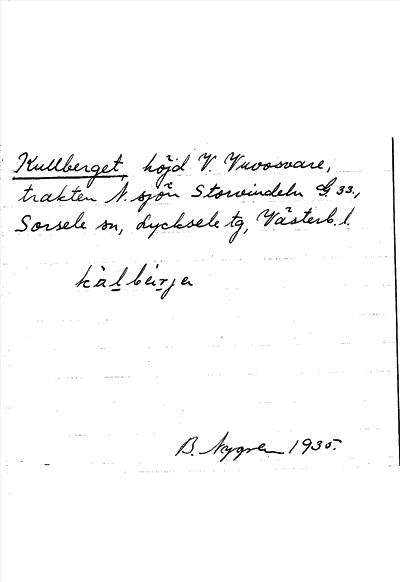 Kullberget, höjd V. Vuoosvare,
trakten N. sjön Storvindeln G 33.,
Sorsele sn, Lycksele tg, Västerb. l.
kàlbérja
B. Nygren 1935.